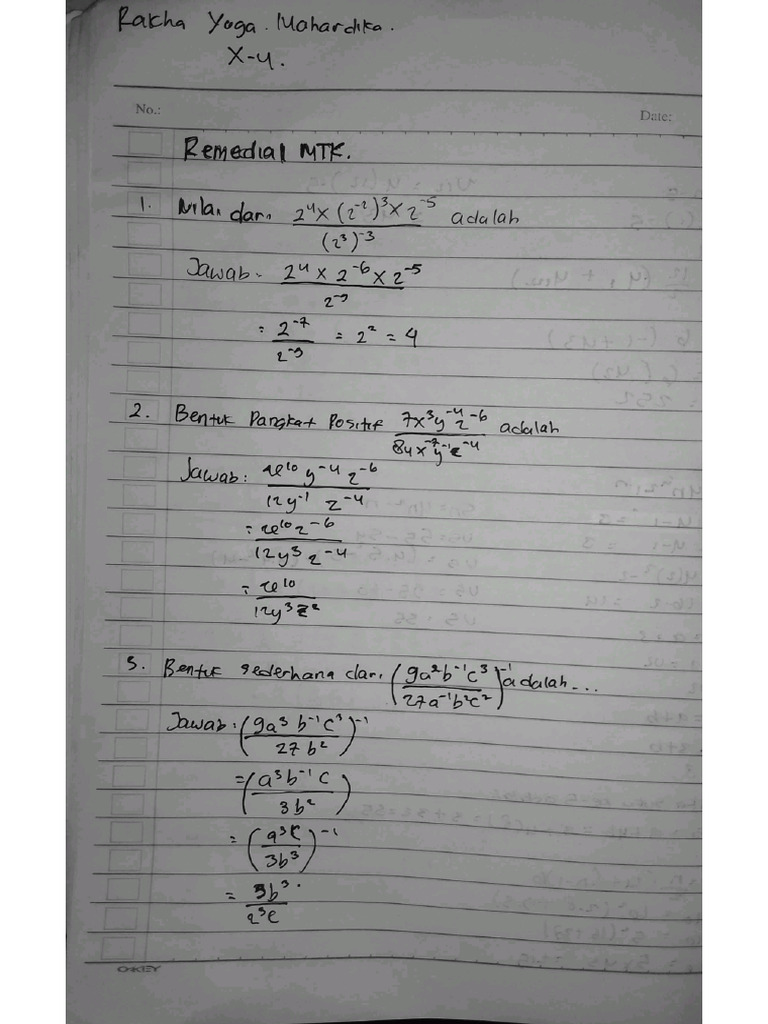 Rakha Yoga. Mahardika.
X-4.
No.: Date:
Remedial MTK.
1. Nilai dari (2⁴ x (2⁻²)³ x 2⁻⁵)/((2³)⁻³) adalah
Jawab. (2⁴ x 2⁻⁶ x 2⁻⁵)/(2⁻⁹)
= 2⁻⁷/2⁻⁹ = 2² = 4
2. Bentuk Pangkat Positif (7x³y⁻⁴z⁻⁶)/(84x⁻⁷y⁻¹z⁻⁴) adalah
Jawab: (x¹⁰y⁻⁴z⁻⁶)/(12y⁻¹ z⁻⁴)
= (x¹⁰z⁻⁶)/(12y³z⁻⁴)
= x¹⁰/(12y³z²)
3. Bentuk sederhana dari ((9a²b⁻¹c³)/(27a⁻¹b²c²))⁻¹ adalah...
Jawab: ((9a³b⁻¹c³)/(27b²))⁻¹
= ((a³b⁻¹c)/(3b²))
= ((a³c)/(3b³))⁻¹
= 3b³/(a³c)
OKEY